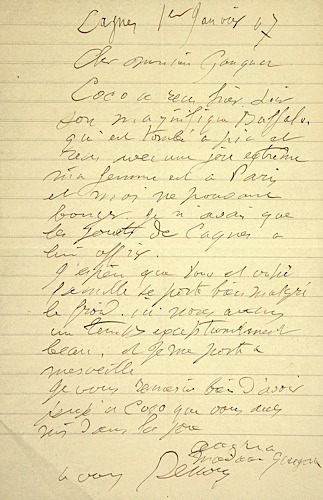 Cagnes 1er Janvier 07
Cher monsieur Gangnat
Coco a reçu hier soir
son magnifique Buffalo
qui est tombé à pic et
reçu avec une joie extrême
ma femme est à Paris
et moi ne pouvant
bouger je n'avais que
les jouets de Cagnes à
lui offrir.
J'espère que vous et votre
famille se porte bien malgré
le froid. ici nous avons
un temps exceptionnellement
beau, et je me porte à
merveille
Je vous remercie bien d'avoir
à Coco que vous avez
mis dans la joie
madame Gangnat
à vous Renoir